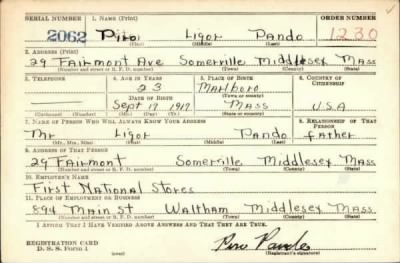 SERIAL NUMBER 1. NAME (Print) ORDER NUMBER
2062 Piro Ligor Pando 1230
(First) (Middle) (Last)
2. ADDRESS (Print)
29 Fairmont Ave Somerville Middlesex Mass
(Number and street or R. F. D. number) (Town) (County) (State)
3. TELEPHONE 4. AGE IN YEARS 5. PLACE OF BIRTH 6. COUNTRY OF CITIZENSHIP
23 Marlboro
DATE OF BIRTH (Town or county)
Sept 17 1917 Mass USA
(Exchange) (No.) (Mo.) (Day) (Yr.) (State or country)
7. NAME OF PERSON WHO WILL ALWAYS KNOW YOUR ADDRESS 8. RELATIONSHIP OF THAT PERSON
Mr Ligor Pando father
(Mr., Mrs., Miss) (First) (Middle) (Last)
9. ADDRESS OF THAT PERSON
29 Fairmont Somerville Middlesex Mass
(Number and street or R. F. D. number) (Town) (County) (State)
10. EMPLOYER'S NAME
First National Stores
11. PLACE OF EMPLOYMENT OR BUSINESS
894 Main St Waltham Middlesex Mass
(Number and street or R. F. D. number) (Town) (County) (State)
I AFFIRM THAT I HAVE VERIFIED ABOVE ANSWERS AND THAT THEY ARE TRUE.
REGISTRATION CARD
D. S. S. Form 1 (over) Piro Pando
(Registrant's signature)